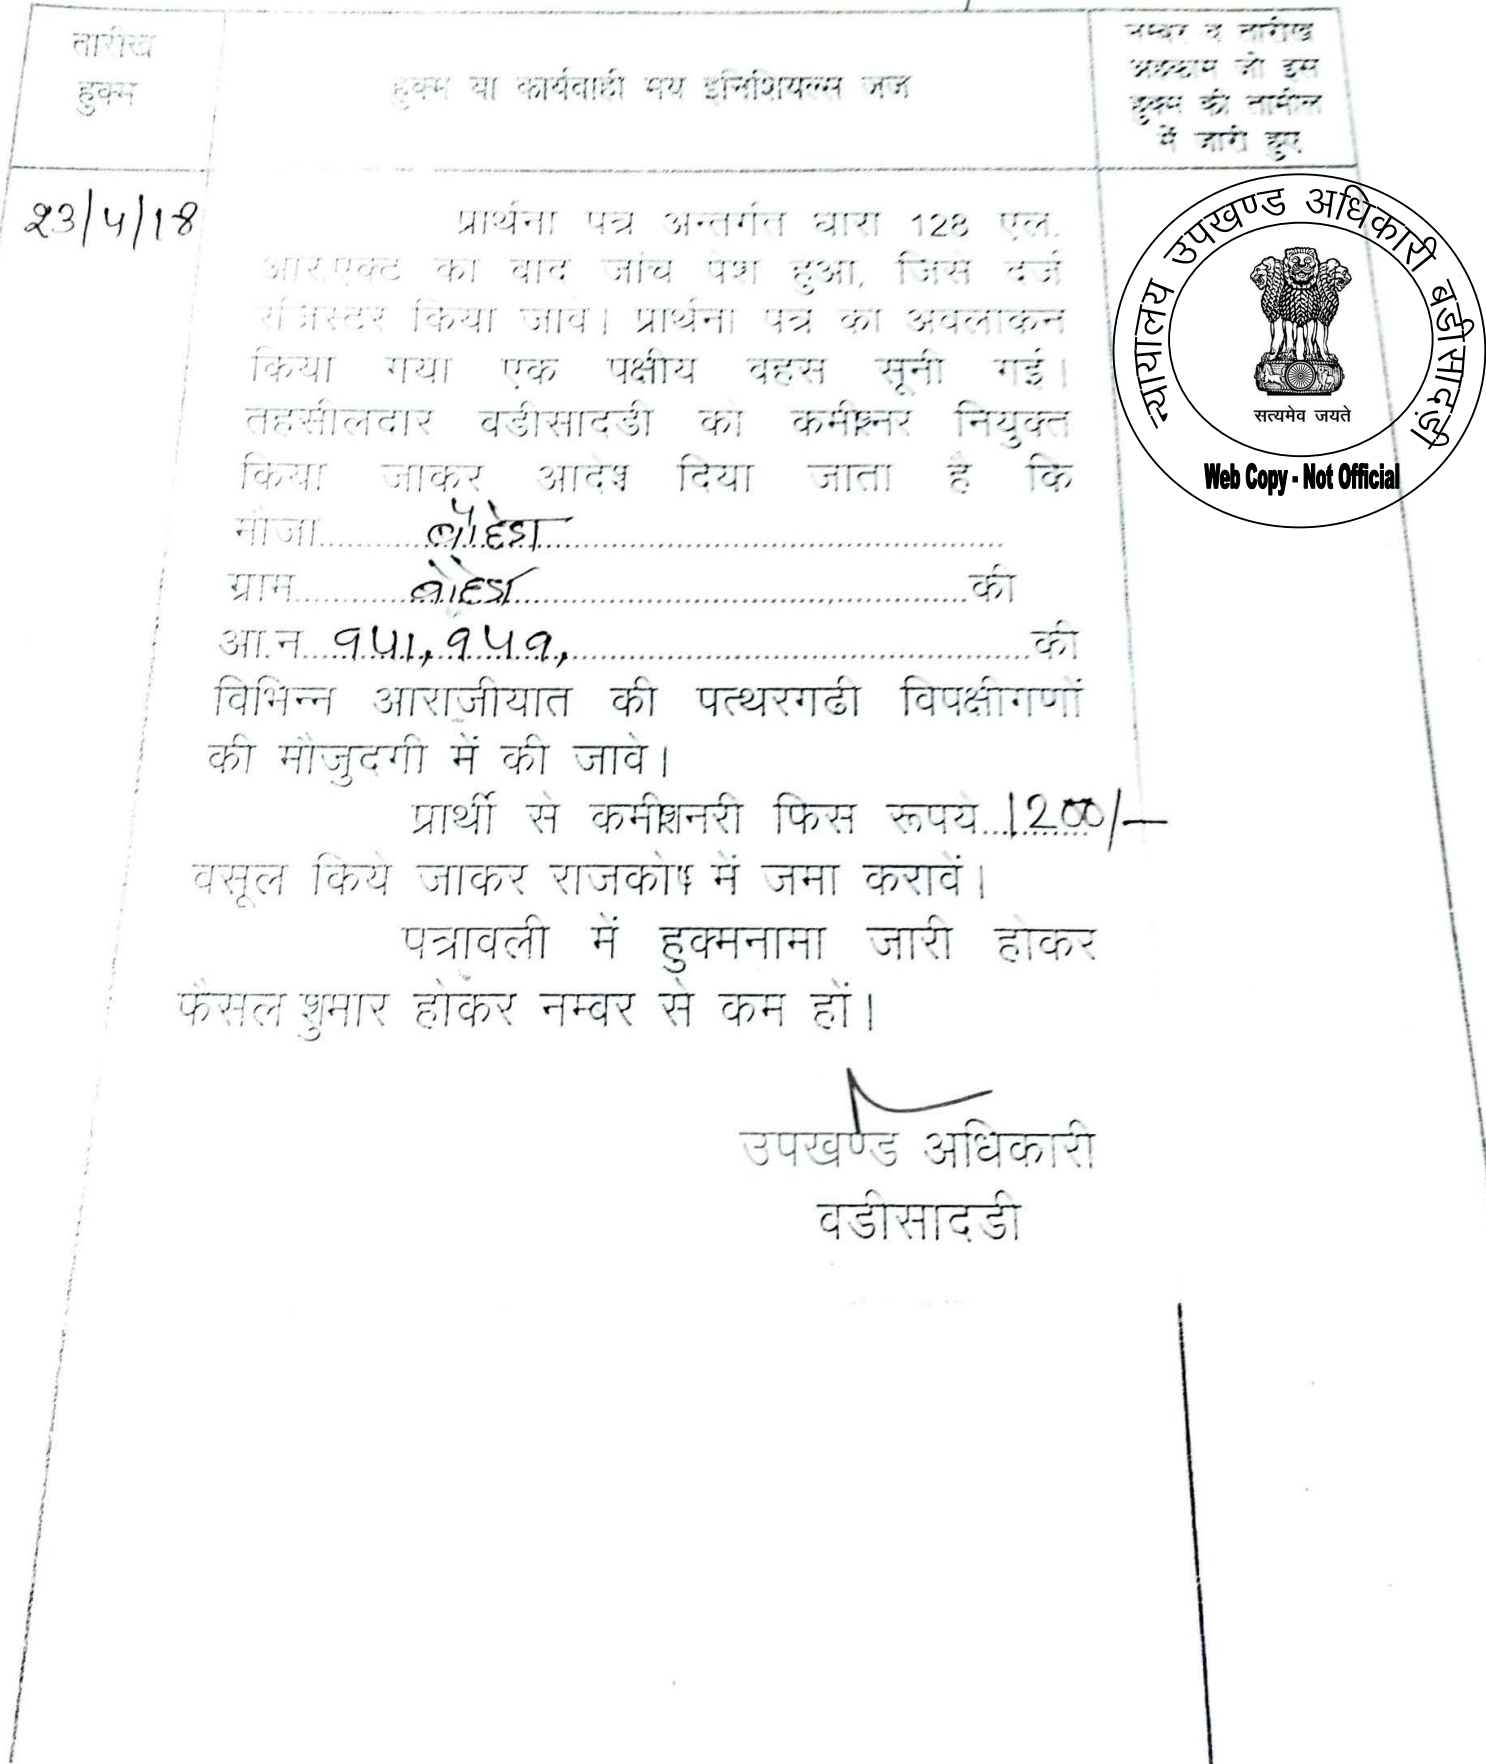 तारीख
हुक्म
हुक्म या कार्यवाही मय इनिशियल्स जज
नम्बर व तारीख
अहकाम जो इस
हुक्म की तामील
में जारी हुए
23/5/18
प्रार्थना पत्र अन्तर्गत धारा 128 एल.
आर.एक्ट का वाद जांच पेश हुआ, जिसे दर्ज
रजिस्टर किया जावे। प्रार्थना पत्र का अवलोकन
किया गया एक पक्षीय वहस सूनी गई।
तहसीलदार वडीसादडी को कमीश्नर नियुक्त
किया जाकर आदेश दिया जाता है कि
मौजा..........................................
ग्राम..........................................की
आ.न...............................की
विभिन्न आराजीयात की पत्थरगढी विपक्षीगणों
की मौजुदगी में की जावे।
प्रार्थी से कमीशनरी फिस रूपये...1200/-
वसूल किये जाकर राजकोष में जमा करावें।
पत्रावली में हुक्मनामा जारी होकर
फैसल शुमार होकर नम्बर से कम हों।
उपखण्ड अधिकारी
वडीसादडी
न्यायालय उपखण्ड अधिकारी बडीसादड़ी
सत्यमेव जयते
Web Copy - Not Official